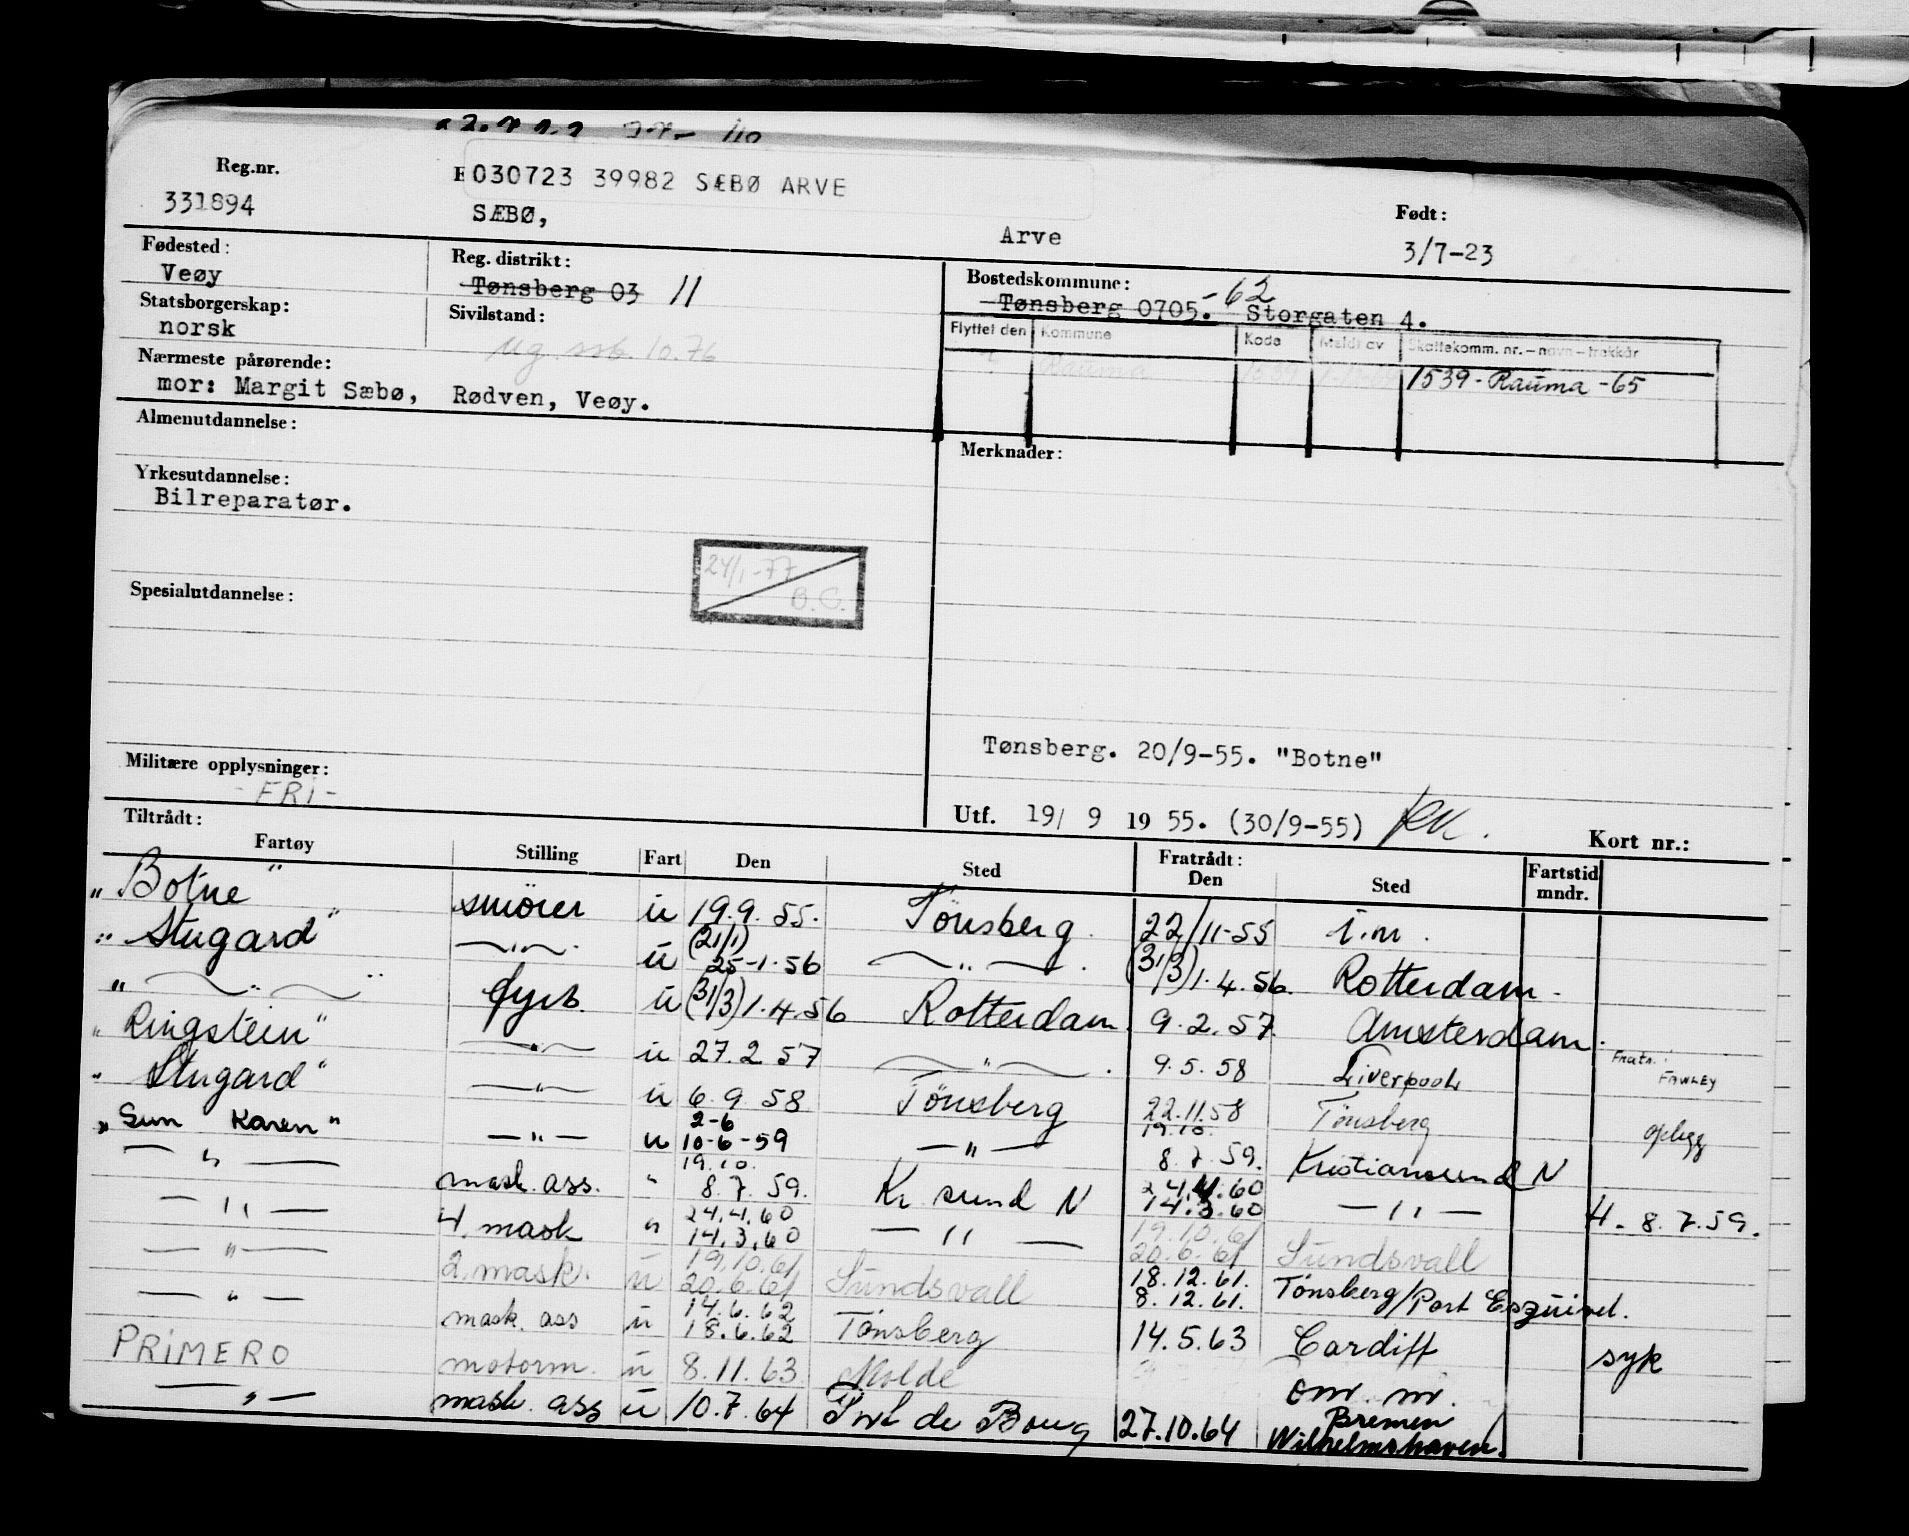 Reg.nr.
030723 39982 SÆBØ ARVE
331894
SÆBØ, Arve
Født:
3/7-23
Fødested:
Veøy
Reg. distrikt:
Tønsberg 03 11
Bostedskommune:
Tønsberg 0705.-62 Storgaten 4.
Statsborgerskap:
norsk
Sivilstand:
ug. ssb. 10.76
Flyttet den Kommune Kode Meldt av Skattekomm. nr. - navn - trekkår
Rauma 1539 1539 - Rauma - 65
Nærmeste pårørende:
mor: Margit Sæbø, Rødven, Veøy.
Almenutdannelse:
Merknader:
Yrkesutdannelse:
Bilreparatør.
24/1-77
B.C.
Spesialutdannelse:
Tønsberg. 20/9-55. "Botne"
Militære opplysninger:
- FRI -
Utf. 19/ 9 1955. (30/9-55)
Kort nr.:
Tiltrådt: Fratrådt:
Fartøy Stilling Fart Den Sted Den Sted Fartstid mndr.
"Botne" smörer u 19.9.55. Tönsberg. 22/11-55 i.m.
"Stugard" —"— u (21/1) 25-1-56 —"— (31/3) 1.4.56. Rotterdam.
"—"—" fyrb. u (31/3) 1.4.56 Rotterdam 9.2.57 Amsterdam.
"Ringstein" —"— u 27.2.57 —"—. 9.5.58 Liverpool Fratr. FAWLEY
"Stugard" —"— u 6.9.58 Tönsberg 22.11.58 Tönsberg opplegg
"Sun Karen" —"— u 2-6 10-6-59 —"— 19.10. 8.7.59. Kristiansund N
—"— mask. ass. " 19.10. 8.7.59. Kr sund N 24.4.60 14.3.60 —"— H. 8.7.59.
—"— 4. mask " 24.4.60 14.3.60 —"— 19.10.61 20.6.61 Sundsvall
—"— 2. mask. u 19.10.61 20.6.61 Sundsvall 18.12.61. 8.12.61. Tönsberg/Port Esquivel.
—"— mask. ass u 14.6.62 18.6.62 Tönsberg 14.5.63 Cardiff syk
PRIMERO motorm. u 8.11.63 Molde om. m.
—"— mask. ass u 10.7.64 Port de Bouc 27.10.64 Bremen Wilhelmshaven.